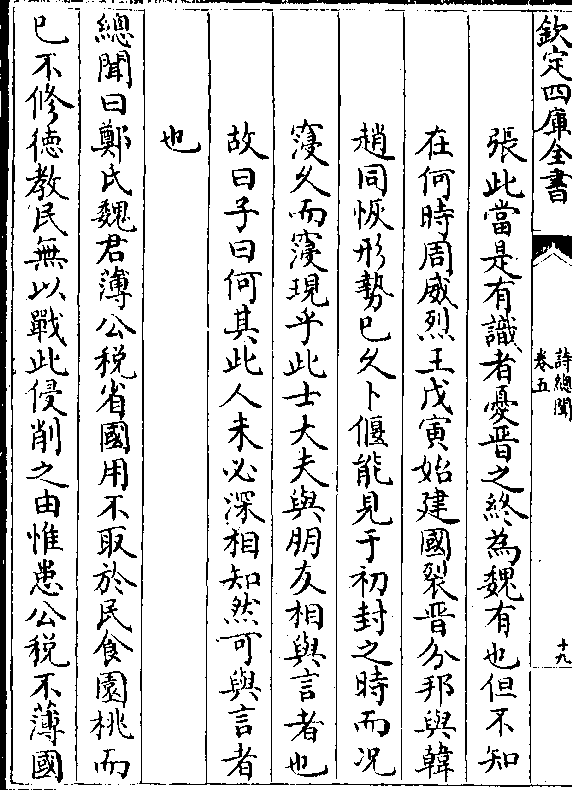 欽定四庫全書
詩總聞
卷五
十九
張此當是有識者憂晋之終為魏有也但不知
在何時周威烈王戊寅始建國裂晋分邦與韓
趙同恢形勢已久卜偃能見于初封之時而况
寖久而寖現乎此士大夫與朋友相與言者也
故曰子曰何其此人未必深相知然可與言者
也
總聞曰鄭氏魏君薄公税省國用不取於民食園桃而
已不修徳教民無以戰此侵削之由惟患公税不薄國